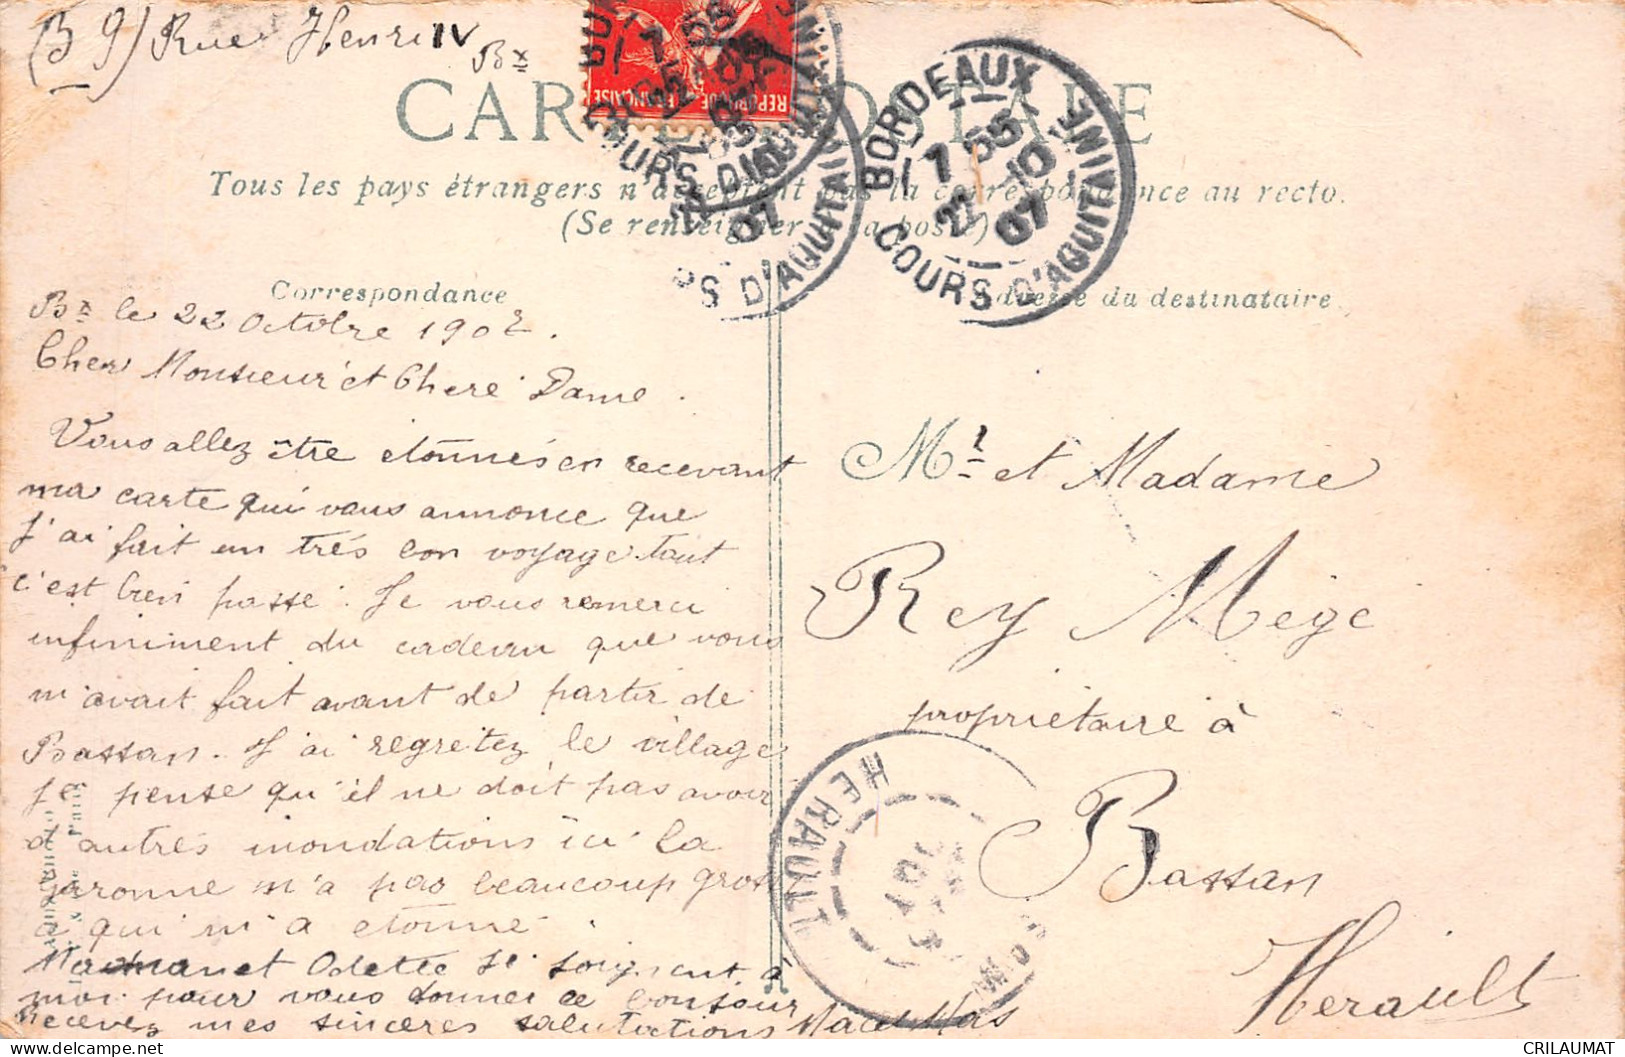 (39) Rue Henri IV Bx
CARTE POSTALE
REPUBLIQUE FRANÇAISE
BORDEAUX
COURS D'AQUITAINE
17 55
22 - 10
07
Tous les pays étrangers n'acceptent pas la correspondance au recto.
(Se renseigner à la poste)
Correspondance
Adresse du destinataire
Bx le 22 Octobre 1907.
Cher Monsieur et Chere Dame.
Vous allez être etonnés en recevant
ma carte qui vous annonce que
J'ai fait un trés bon voyage tout
c'est bien passé. Je vous remerci
infiniment du cadeau que vous
m'avait fait avant de partir de
Bassan. J'ai regretez le village
Je pense qu'il ne doit pas avoir
d'autrés inondations ici la
garonne m'a pas beaucoup grossi
a qui m'a etonné
Maman et Odette se joignent à
moi pour vous donner le bonjour
Recevez mes sinceres salutations
Mr et Madame
Rey Mége
propriétaire à
Bassan
Herault
HERAULT
CRILAUMAT